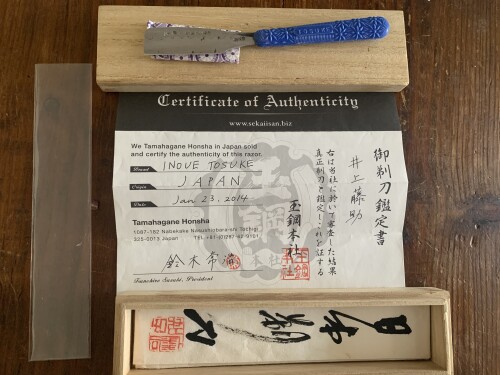 Certificate of Authenticity
www.sekaiisan.biz
We Tamahagane Honsha in Japan sold
and certify the authenticity of this razor.
Brand INOUE TOSUKE
Origin JAPAN
Date Jan 23, 2014
Tamahagane Honsha
325-0013 Japan
鈴木常浩
Tsunehiro Suzuki, President
御剃刀鑑定書
井上藤助
右は当社に於いて審査した結果
真正剃刀と鑑定しこれを証する
玉鋼本社
日本剃刀